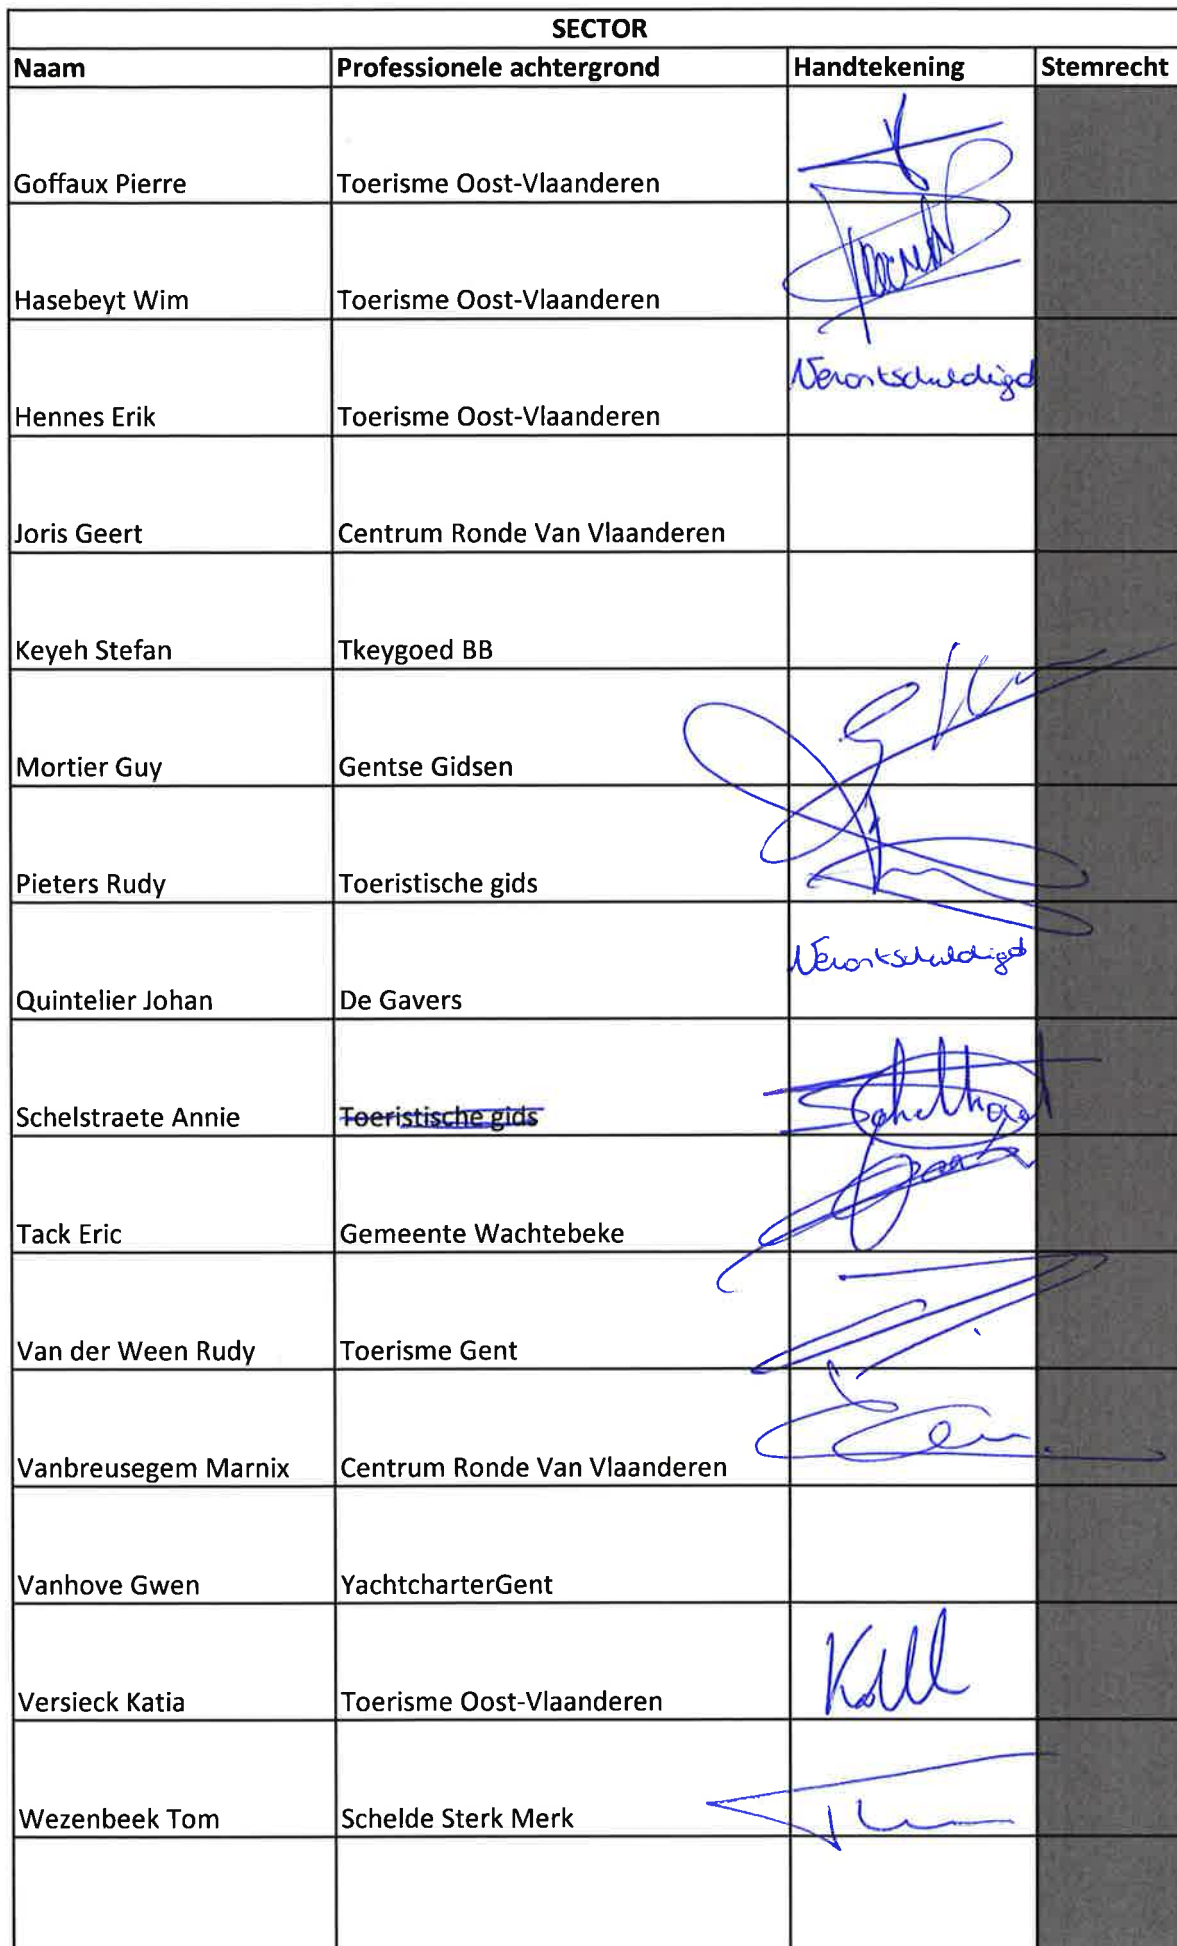 SECTOR
Naam Professionele achtergrond Handtekening Stemrecht
Goffaux Pierre Toerisme Oost-Vlaanderen
Hasebeyt Wim Toerisme Oost-Vlaanderen
Hennes Erik Toerisme Oost-Vlaanderen Verontschuldigd
Joris Geert Centrum Ronde Van Vlaanderen
Keyeh Stefan Tkeygoed BB
Mortier Guy Gentse Gidsen
Pieters Rudy Toeristische gids
Quintelier Johan De Gavers Verontschuldigd
Schelstraete Annie Toeristische gids
Tack Eric Gemeente Wachtebeke
Van der Ween Rudy Toerisme Gent
Vanbreusegem Marnix Centrum Ronde Van Vlaanderen
Vanhove Gwen YachtcharterGent
Versieck Katia Toerisme Oost-Vlaanderen
Wezenbeek Tom Schelde Sterk Merk